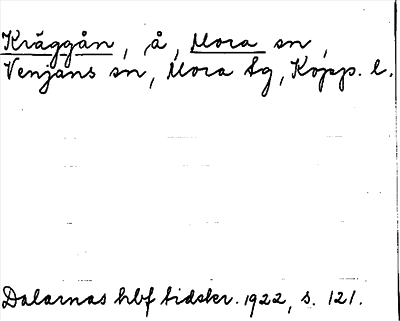 Kräggån, å, Mora sn,
Venjans sn, Mora tg, Kopp. l.
Dalarnas hbf tidskr. 1922, s. 121.